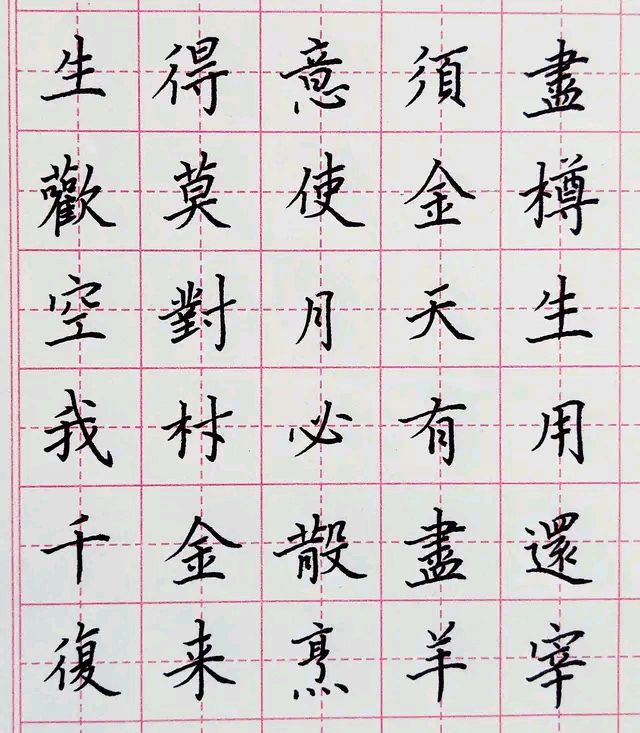 生得意須盡
歡莫使金樽
空對月天生
我材必有用
千金散盡還
復来烹羊宰